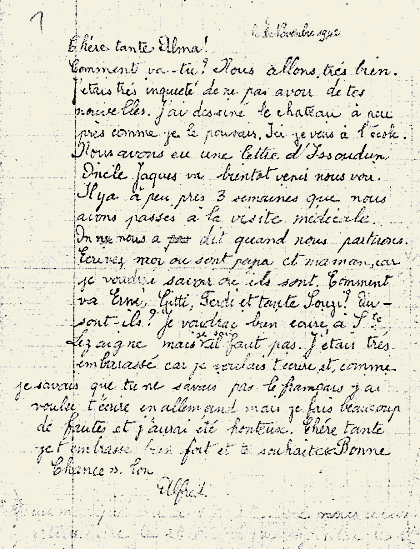 1
Novembre 1942
Chére tante Alma!
Comment va-tu? Nous allons trés bien.
J'etais trés inquieté de ne pas avoir de tes
nouvelles. J'ai dessiné le chateau à peu
prés comme je le pouvais. Ici je vais à l'école.
Nous avons eu une lettre d'Issoudun.
Oncle Jaques va bientot venir nous voir.
Il y a à peu prés 3 semaines que nous
avions passés à la visite médecale.
On nous a dit quand nous partirons.
Ecrivez moi ou sont papa et maman, car
je voudrai savoir ou ils sont. Comment
va Erné, Gitti, Ferdi et tante Souzi? Ou-
sont-ils? Je voudrai bien ecrire à
mais il faut pas. J'étais trés
embarassé car je voulais t'ecrire et, comme
je savais que tu ne savais pas le français j'ai
voulu t'écrire en allemand mais je fais beaucoup
de fautes et j'aurai été honteux. Chére tante
je t'embrasse bien fort et te souhaites Bonne
Chance. Ton
Alfred.